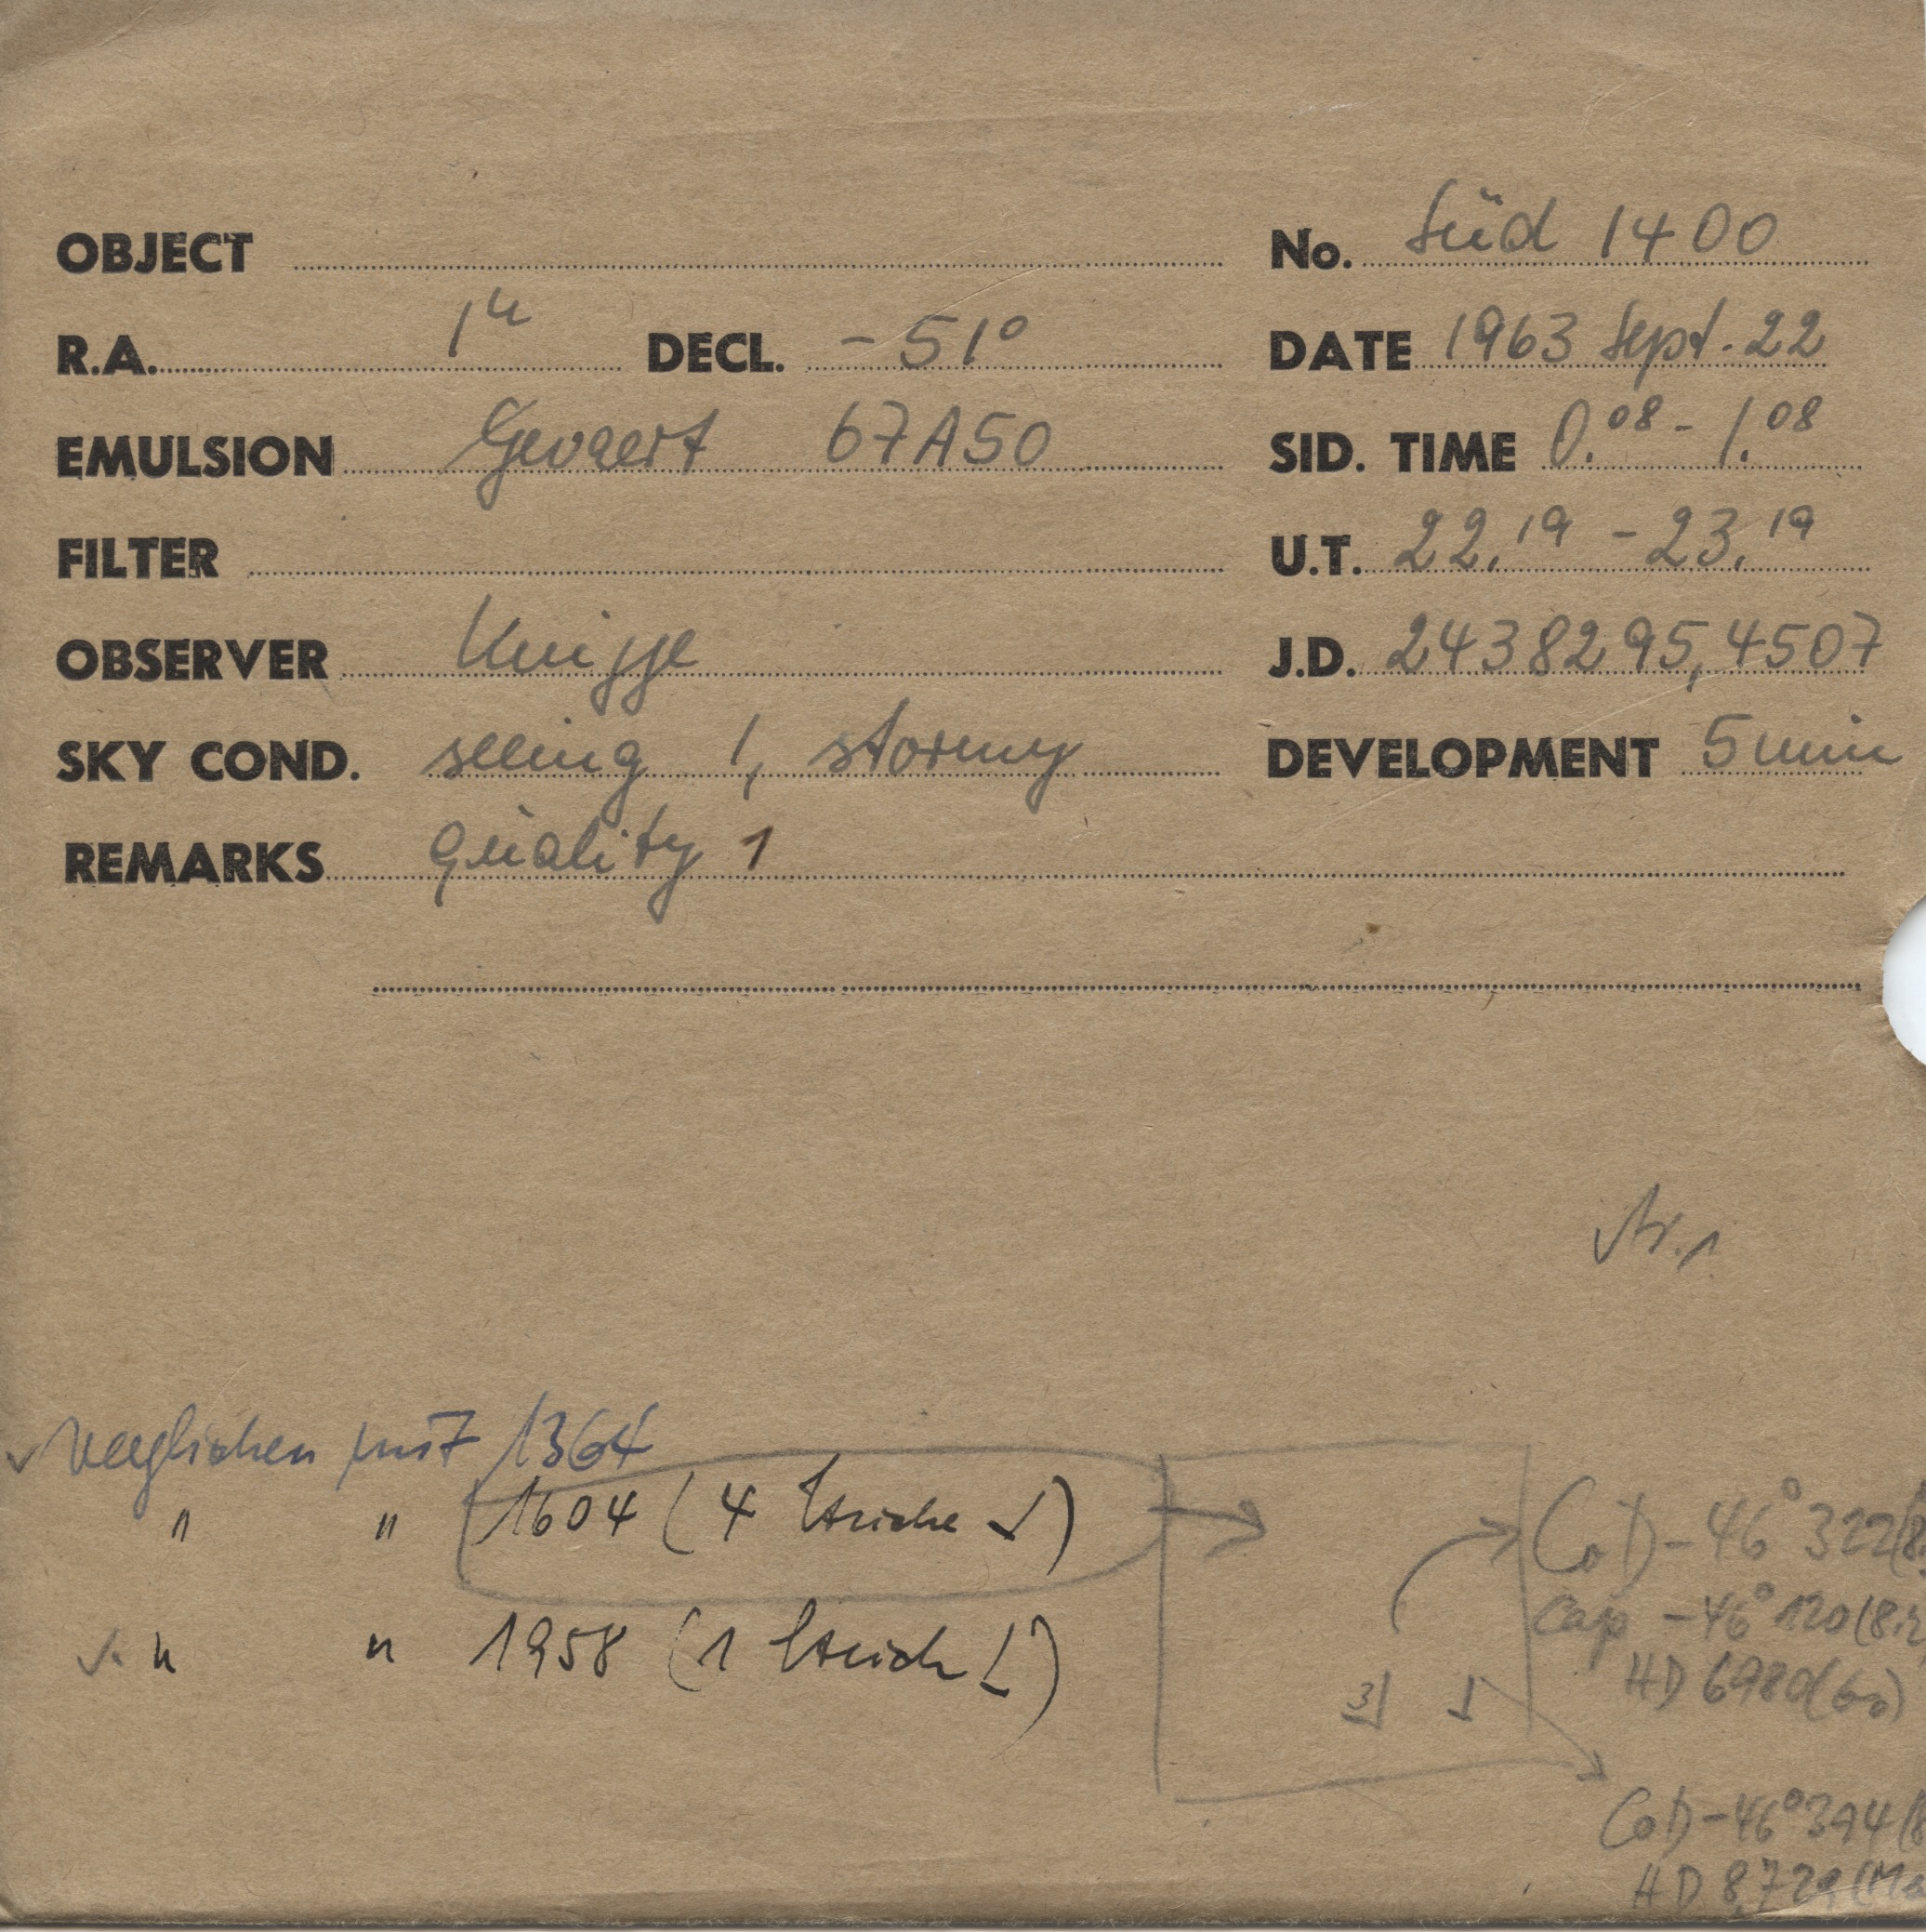 OBJECT No. Süd 1400
R.A. 1h DECL. -51° DATE 1963 Sept. 22
EMULSION Gevaert 67A50 SID. TIME 0.08 - 1.08
FILTER U.T. 22.19 - 23.19
OBSERVER Knigge J.D. 2438295,4507
SKY COND. seeing 1, stormy DEVELOPMENT 5 min
REMARKS quality 1
Nr. 1
Verglichen mit 1364
" " 1604 (4 Striche ✓)
" " 1958 (1 Strich
CoD -46° 322 (8
Cap -46° 120 (8.2
HD 6980 (G0)
3 1
CoD -46° 394 (8
HD 8729 (Ma